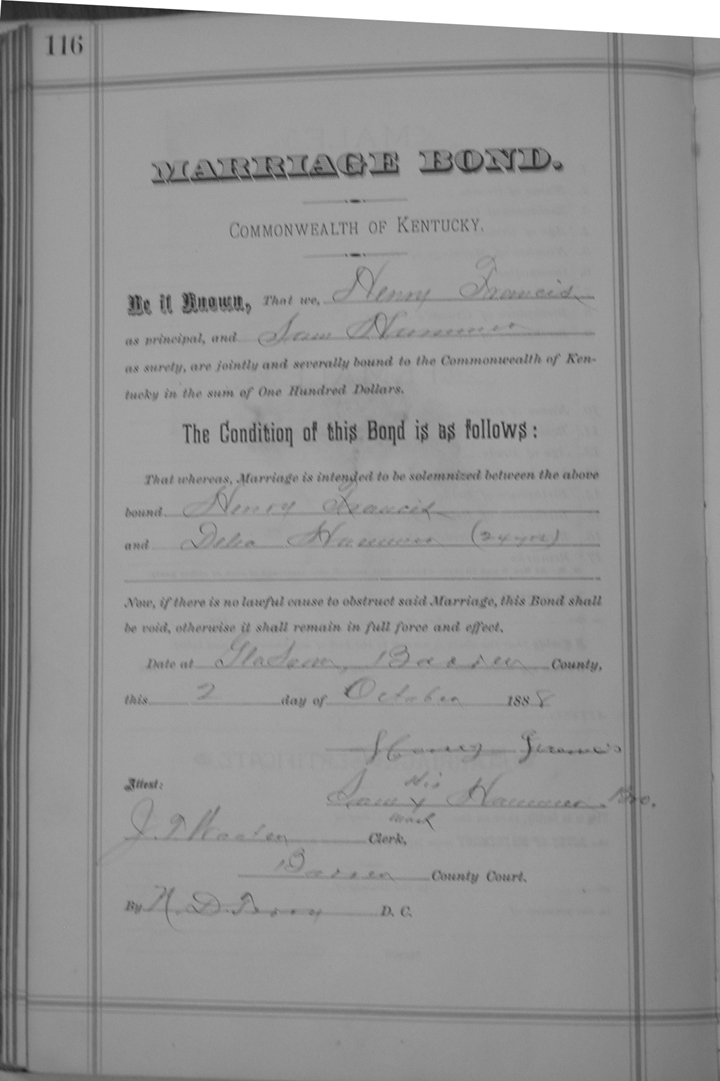 116
MARRIAGE BOND.
COMMONWEALTH OF KENTUCKY.
Be it Known, That we, Henry Francis
as principal, and Sam Hammer
as surety, are jointly and severally bound to the Commonwealth of Ken-
tucky in the sum of One Hundred Dollars.
The Condition of this Bond is as follows:
That whereas, Marriage is intended to be solemnized between the above
bound Henry Francis
and Delia Hammer (24 yrs)
Now, if there is no lawful cause to obstruct said Marriage, this Bond shall
be void, otherwise it shall remain in full force and effect.
Date at Barren County,
this 2 day of October 1888
Henry Francis
his
Attest: Sam x Hammer Bro.
mark
J. T. Clerk,
Barren County Court.
By N. D. D. C.